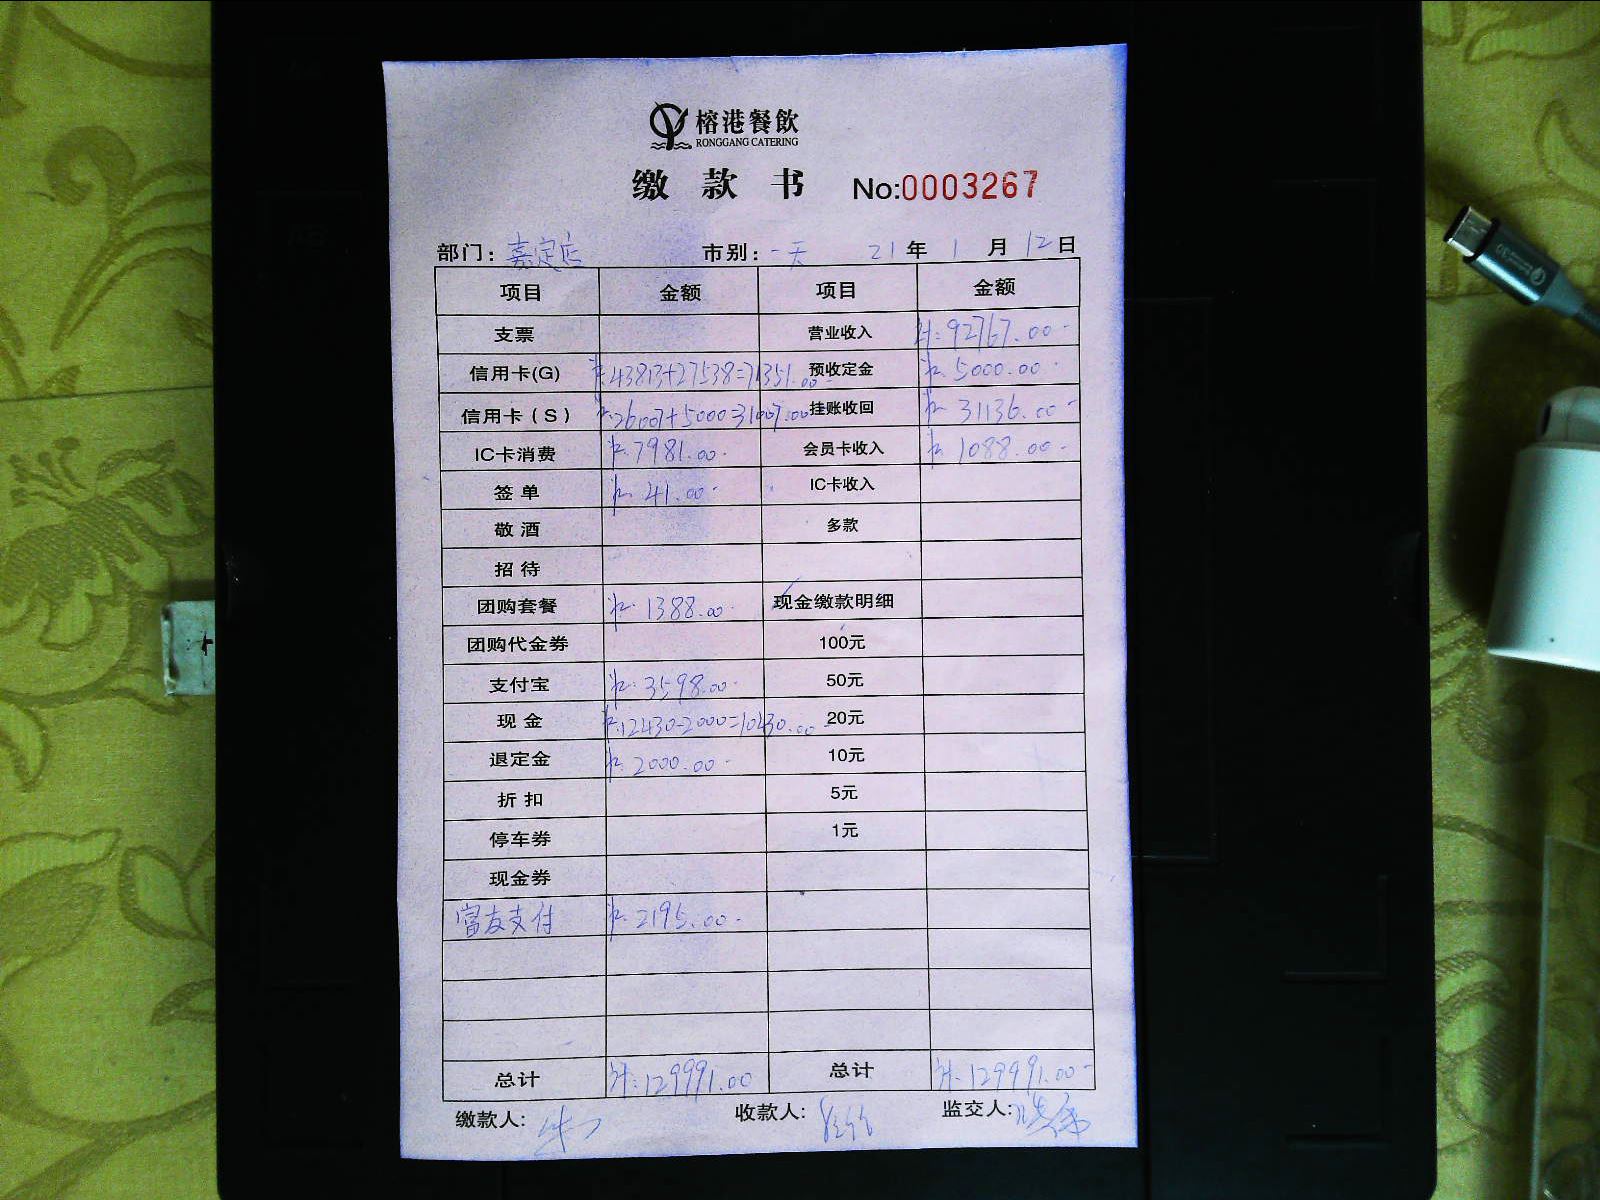 榕港餐飲
RONGGANG CATERING
缴款书 No:0003267
部门：嘉定店 市别：一天 21年1月12日
项目 金额 项目 金额
支票 营业收入 计:92767.00-
信用卡(G) 43813+27538=71351.00- 预收定金 5000.00-
信用卡（S） 26007+5000=31007.00 挂账收回 31136.00-
IC卡消费 7981.00- 会员卡收入 1088.00-
签单 41.00- IC卡收入
敬酒 多款
招待
团购套餐 1388.00- 现金缴款明细
团购代金券 100元
支付宝 3598.00- 50元
现金 12430-2000=10430.00- 20元
退定金 2000.00- 10元
折扣 5元
停车券 1元
现金券
富友支付 2195.00-
总计 计:129991.00 总计 计:129991.00-
缴款人: 收款人: 监交人: